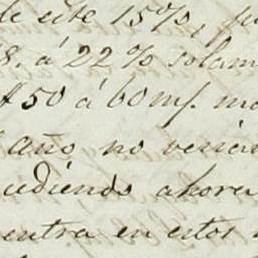 de este 15%, pu
8. á 22% solam
50 á 60 mf. ma
año no vencie
udiendo ahora
entra en estos